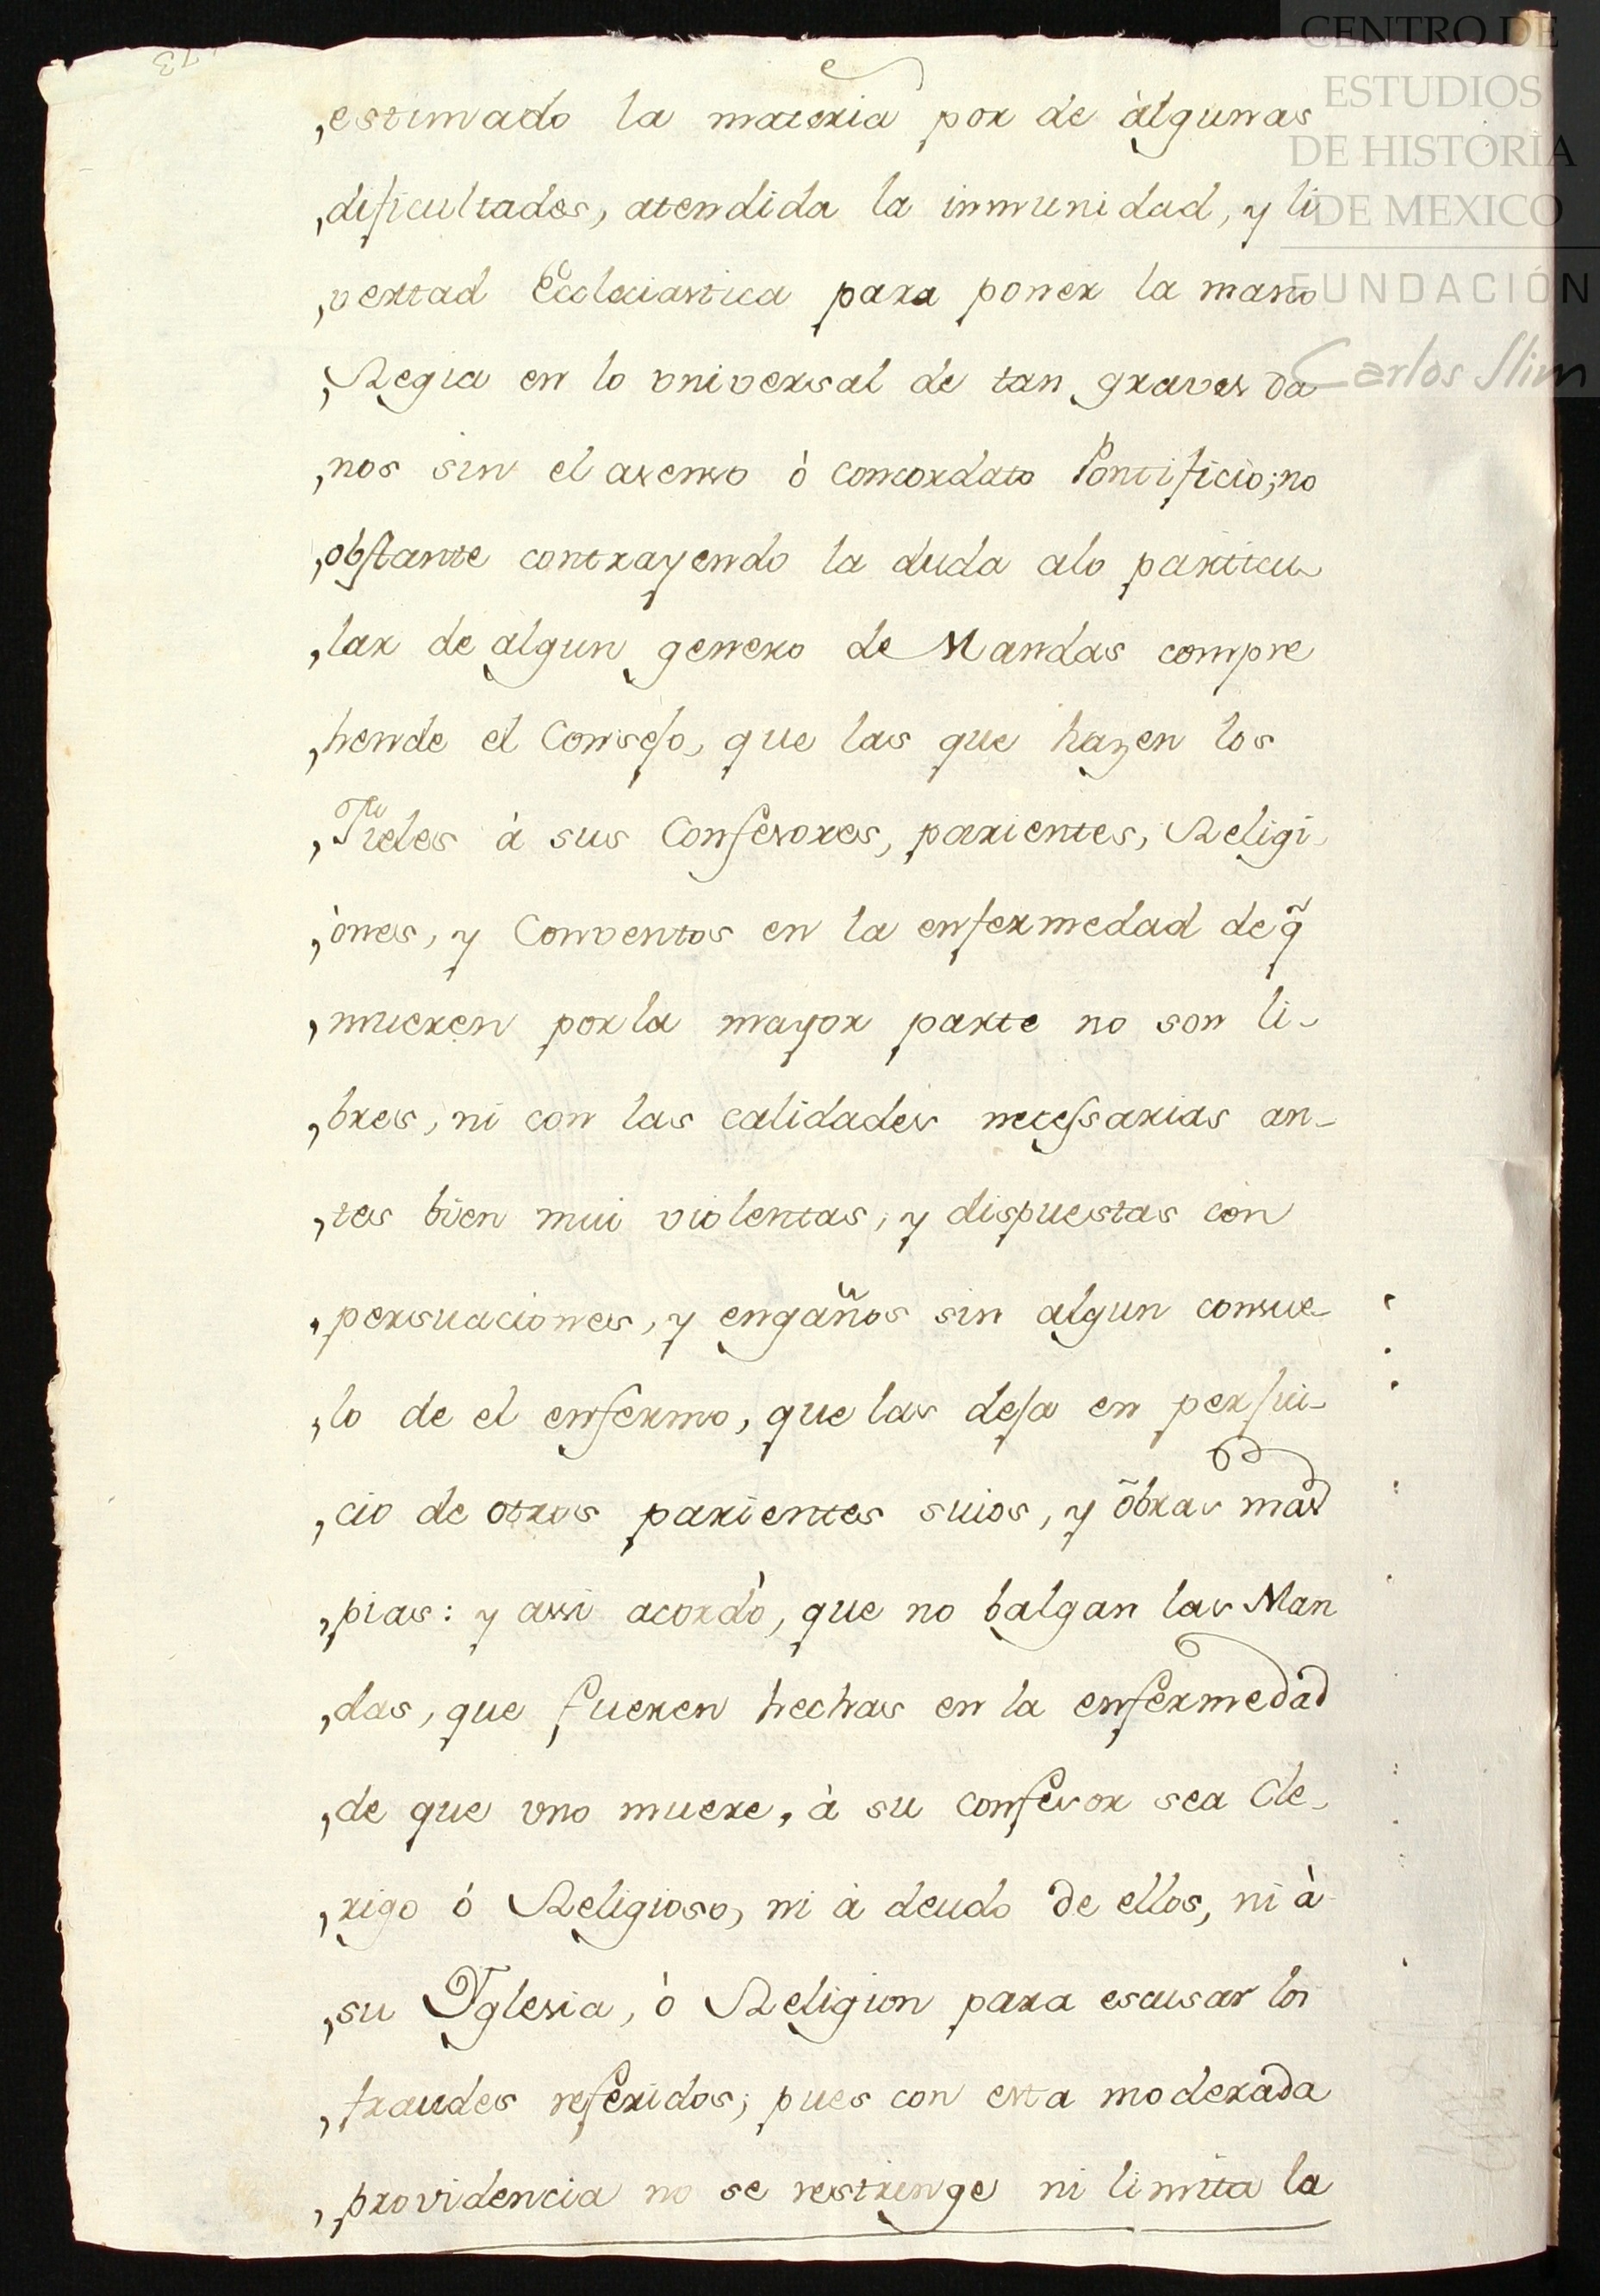 73
CENTRO DE
ESTUDIOS
DE HISTORIA
DE MEXICO
FUNDACIÓN
Carlos Slim
,estimado la materia por de àlgunas
,dificultades, atendida la inmunidad, y li
,vertad Ecclesiastica para poner la mano
,Regia en lo vniversal de tan graves da
,nos sin el asenso ò concordato Pontificio; no
,obstante contrayendo la duda alo particu
,lar de algun genero de Mandas compre
,hende el Consejo, que las que hazen los
,Fieles à sus Confesores, parientes, Religi
,ònes, y Conventos en la enfermedad de q̃
,mueren por la mayor parte no son li-
,bres, ni con las calidades necessarias an-
,tes bien mui violentas, y dispuestas con
,persuaciones, y engaños sin algun consue
,lo de el enfermo, que las deja en perjui-
,cio de otros parientes suios, y õbras mas
,pias: y assi acordò, que no balgan las Man
,das, que fueren hechas en la enfermedad
,de que vno muere, à su confesor sea Cle-
,rigo ó Religioso, ni à deudo de ellos, ni à
,su Yglesia, ò Religion para escusar los
,fraudes referidos; pues con esta moderada
,providencia no se restringe ni limita la